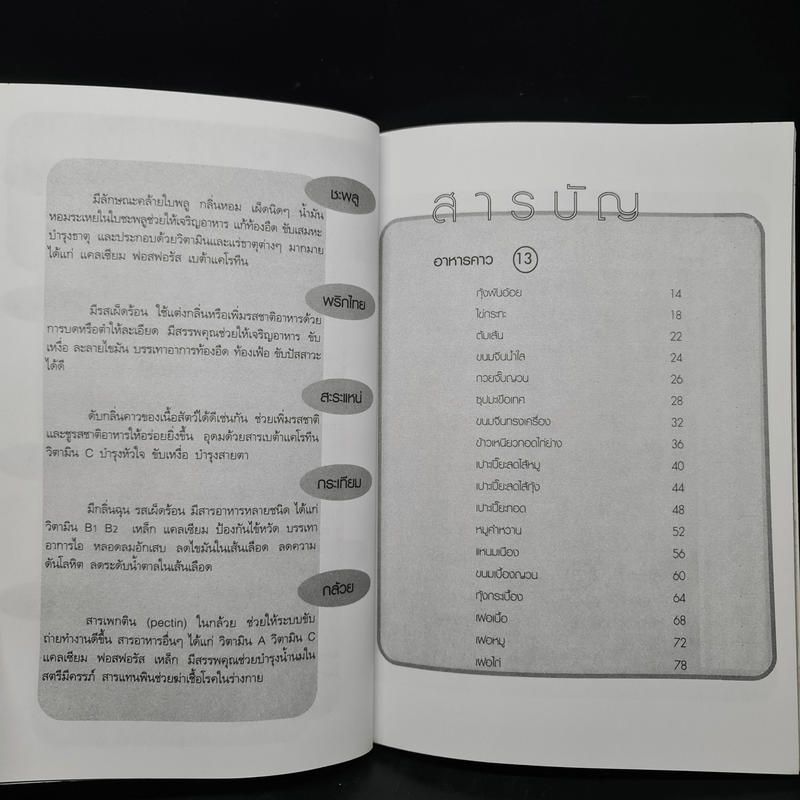 ชะพลู
มีลักษณะคล้ายใบพลู กลิ่นหอม เผ็ดนิดๆ น้ำมัน
หอมระเหยในใบชะพลูช่วยให้เจริญอาหาร แก้ท้องอืด ขับเสมหะ
บำรุงธาตุ และประกอบด้วยวิตามินและแร่ธาตุต่างๆ มากมาย
ได้แก่ แคลเซียม ฟอสฟอรัส เบต้าแคโรทีน
พริกไทย
มีรสเผ็ดร้อน ใช้แต่งกลิ่นหรือเพิ่มรสชาติอาหารด้วย
การบดหรือตำให้ละเอียด มีสรรพคุณช่วยให้เจริญอาหาร ขับ
เหงื่อ ละลายไขมัน บรรเทาอาการท้องอืด ท้องเฟ้อ ขับปัสสาวะ
ได้ดี
สะระแหน่
ดับกลิ่นคาวของเนื้อสัตว์ได้ดีเช่นกัน ช่วยเพิ่มรสชาติ
และชูรสชาติอาหารให้อร่อยยิ่งขึ้น อุดมด้วยสารเบต้าแคโรทีน
วิตามิน C บำรุงหัวใจ ขับเหงื่อ บำรุงสายตา
กระเทียม
มีกลิ่นฉุน รสเผ็ดร้อน มีสารอาหารหลายชนิด ได้แก่
วิตามิน B1 B2 เหล็ก แคลเซียม ป้องกันไข้หวัด บรรเทา
อาการไอ หลอดลมอักเสบ ลดไขมันในเส้นเลือด ลดความ
ดันโลหิต ลดระดับน้ำตาลในเส้นเลือด
กล้วย
สารเพกติน (pectin) ในกล้วย ช่วยให้ระบบขับ
ถ่ายทำงานดีขึ้น สารอาหารอื่นๆ ได้แก่ วิตามิน A วิตามิน C
แคลเซียม ฟอสฟอรัส เหล็ก มีสรรพคุณช่วยบำรุงน้ำนมใน
สตรีมีครรภ์ สารแทนนินช่วยฆ่าเชื้อโรคในร่างกาย
สารบัญ
อาหารคาว 13
กุ้งพันอ้อย 14
ไข่กระทะ 18
ต้มเส้น 22
ขนมจีนน้ำใส 24
กวยจั๊บญวน 26
ซุปมะเขือเทศ 28
ขนมจีนทรงเครื่อง 32
ข้าวเหนียวทอดไก่ย่าง 36
เปาะเปี๊ยะสดไส้หมู 40
เปาะเปี๊ยะสดไส้กุ้ง 44
เปาะเปี๊ยะทอด 48
หมูคำหวาน 52
แหนมเนือง 56
ขนมเบื้องญวน 60
กุ้งกระเบื้อง 64
เฝอเนื้อ 68
เฝอหมู 72
เฝอไก่ 78